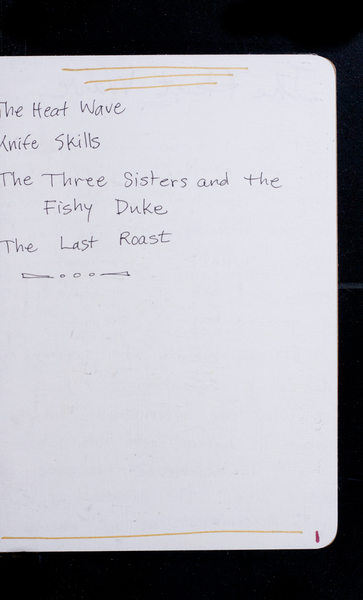 The Heat Wave
Knife Skills
The Three Sisters and the
Fishy Duke
The Last Roast